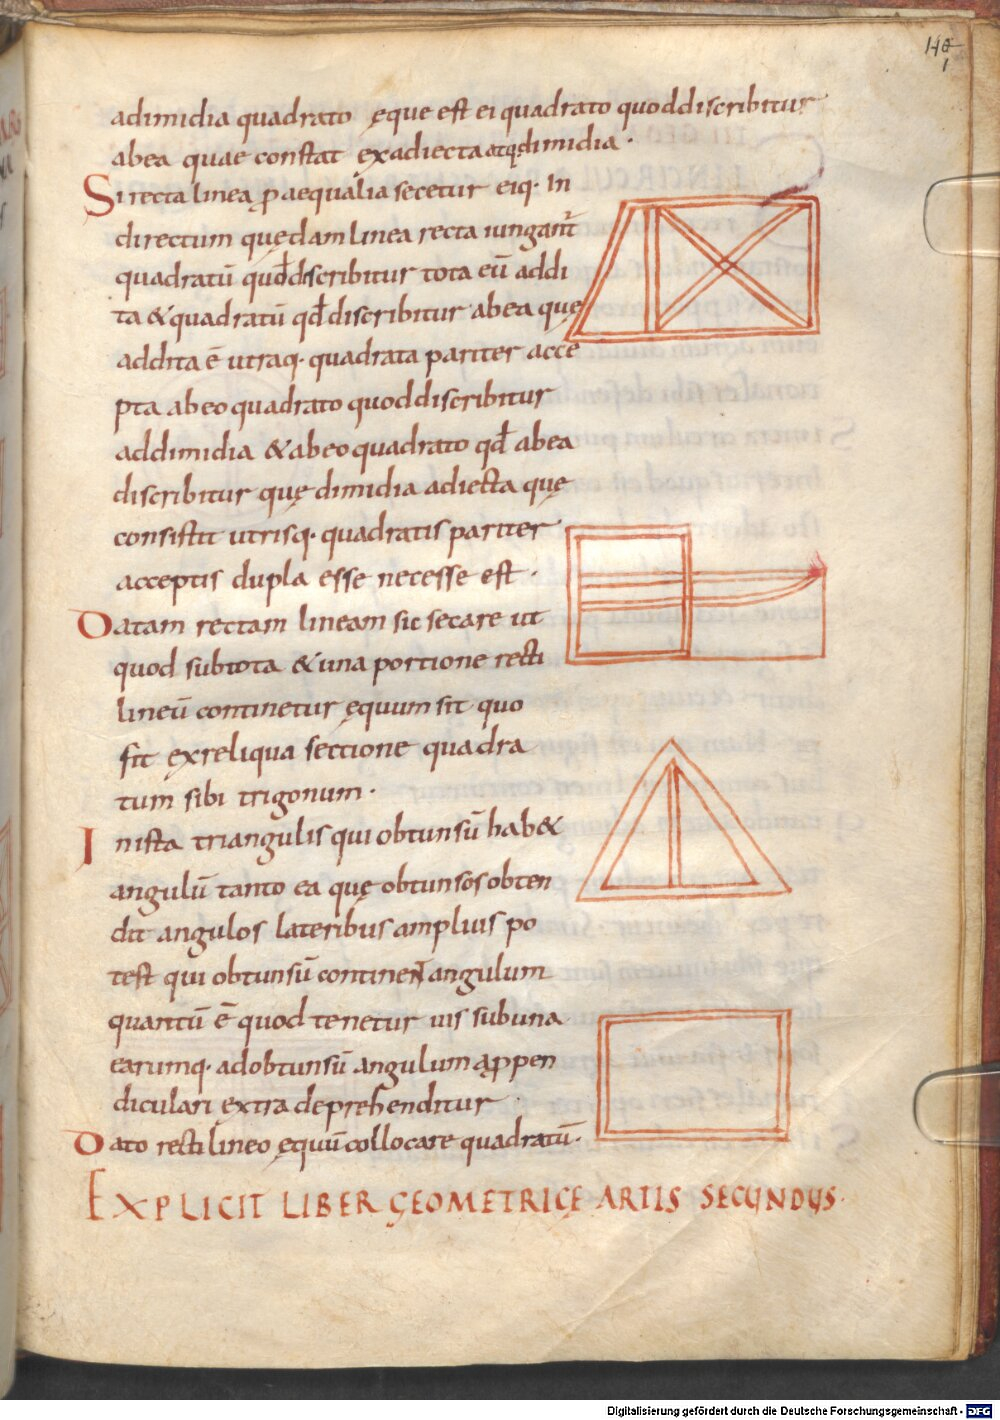 140
1
adimidia quadrato ęque est ei quadrato quod discribitur
abea quae constat exadiecta atq; dimidia ·
Si recta linea p aequalia secetur eiq· In
directum quędam linea recta iungant̄
quadratū quod discribitur tota cū addi
ta & quadratū qđ discribitur abea que
addita ē utraq· quadrata pariter acce
pta ab eo quadrato quod discribitur
addimidia & ab eo quadrato qđ abea
discribitur quę dimidia adiecta quę
consistit utrisq· quadratis pariter
acceptis dupla esse necesse est ·
Datam rectam lineam sic secare ut
quod subtota & una portione recti
lineū continetur ęquum sit quo
fit exreliqua sectione quadra
tum sibi trigonum ·
In ista triangulis qui obtunsū hab&
angulū tanto ea quę obtunsos obten
dit angulos lateribus amplius po
test qui obtunsū continent angulum
quantū ē quod tenetur uis sub una
earumq· ad obtunsū angulum a perpen
diculari extra deprehenditur ·
Dato rectilineo ęquū collocare quadratū·
EXPLICIT LIBER GEOMETRICE ARTIS SECUNDUS·
Digitalisierung gefördert durch die Deutsche Forschungsgemeinschaft - DFG